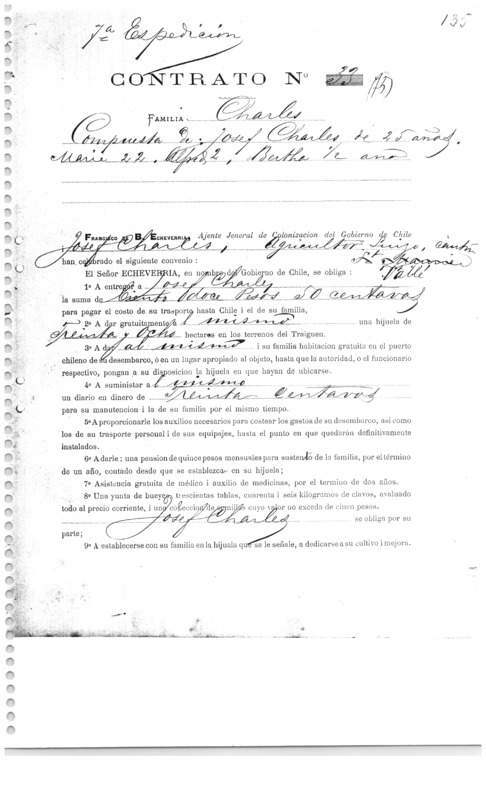 135
7ª Espedicion
CONTRATO Nº 33 (75)
FAMILIA Charles
Compuesta de: Josef Charles de 25 años,
Marie 22. 2, Bertha 1/2 año
FRANCISCO DE B. ECHEVERRIA, Ajente Jeneral de Colonizacion del Gobierno de Chile
Josef Charles, Agricultor Suizo, canton
han celebrado el siguiente convenio:
El Señor ECHEVERRIA, en nombre del Gobierno de Chile, se obliga:
1º A entregar a Josef Charles
la suma de Ciento doce Pesos 50 centavos
para pagar el costo de su trasporto hasta Chile i el de su familia,
2º A dar gratuitamente al mismo una hijuela de
Treinta y Ocho hectareas en los terrenos del Traiguen.
3º A dar al mismo i su familia habitacion gratuita en el puerto
chileno de su desembarco, ó en un lugar apropiado al objeto, hasta que la autoridad, o el funcionario
respectivo, pongan a su disposicion la hijuela en que hayan de ubicarse.
4º A suministar al mismo
un diario en dinero de Treinta centavos
para su manutencion i la de su familia por el mismo tiempo.
5º A proporcionarle los auxilios necesarios para costear los gastos de su desembarco, asi como
los de su trasporte personal i de sus equipajes, hasta el punto en que quedarán definitivamente
instalados.
6º A darle: una pension de quince pesos mensuales para sustento de la familia, por el término
de un año, contado desde que se establezca en su hijuela;
7º Asistencia gratuita de médico i auxilio de medicinas, por el termino de dos años.
8º Una yunta de bueyes, trescientas tablas, cuarenta i seis kilogramos de clavos, avaluado
todo al precio corriente, i una coleccion de semillas cuyo valor no exceda de cinco pesos.
Josef Charles se obliga por su
parte;
9º A establecerse con su familia en la hijuela que se le señale, a dedicarse a su cultivo i mejora.